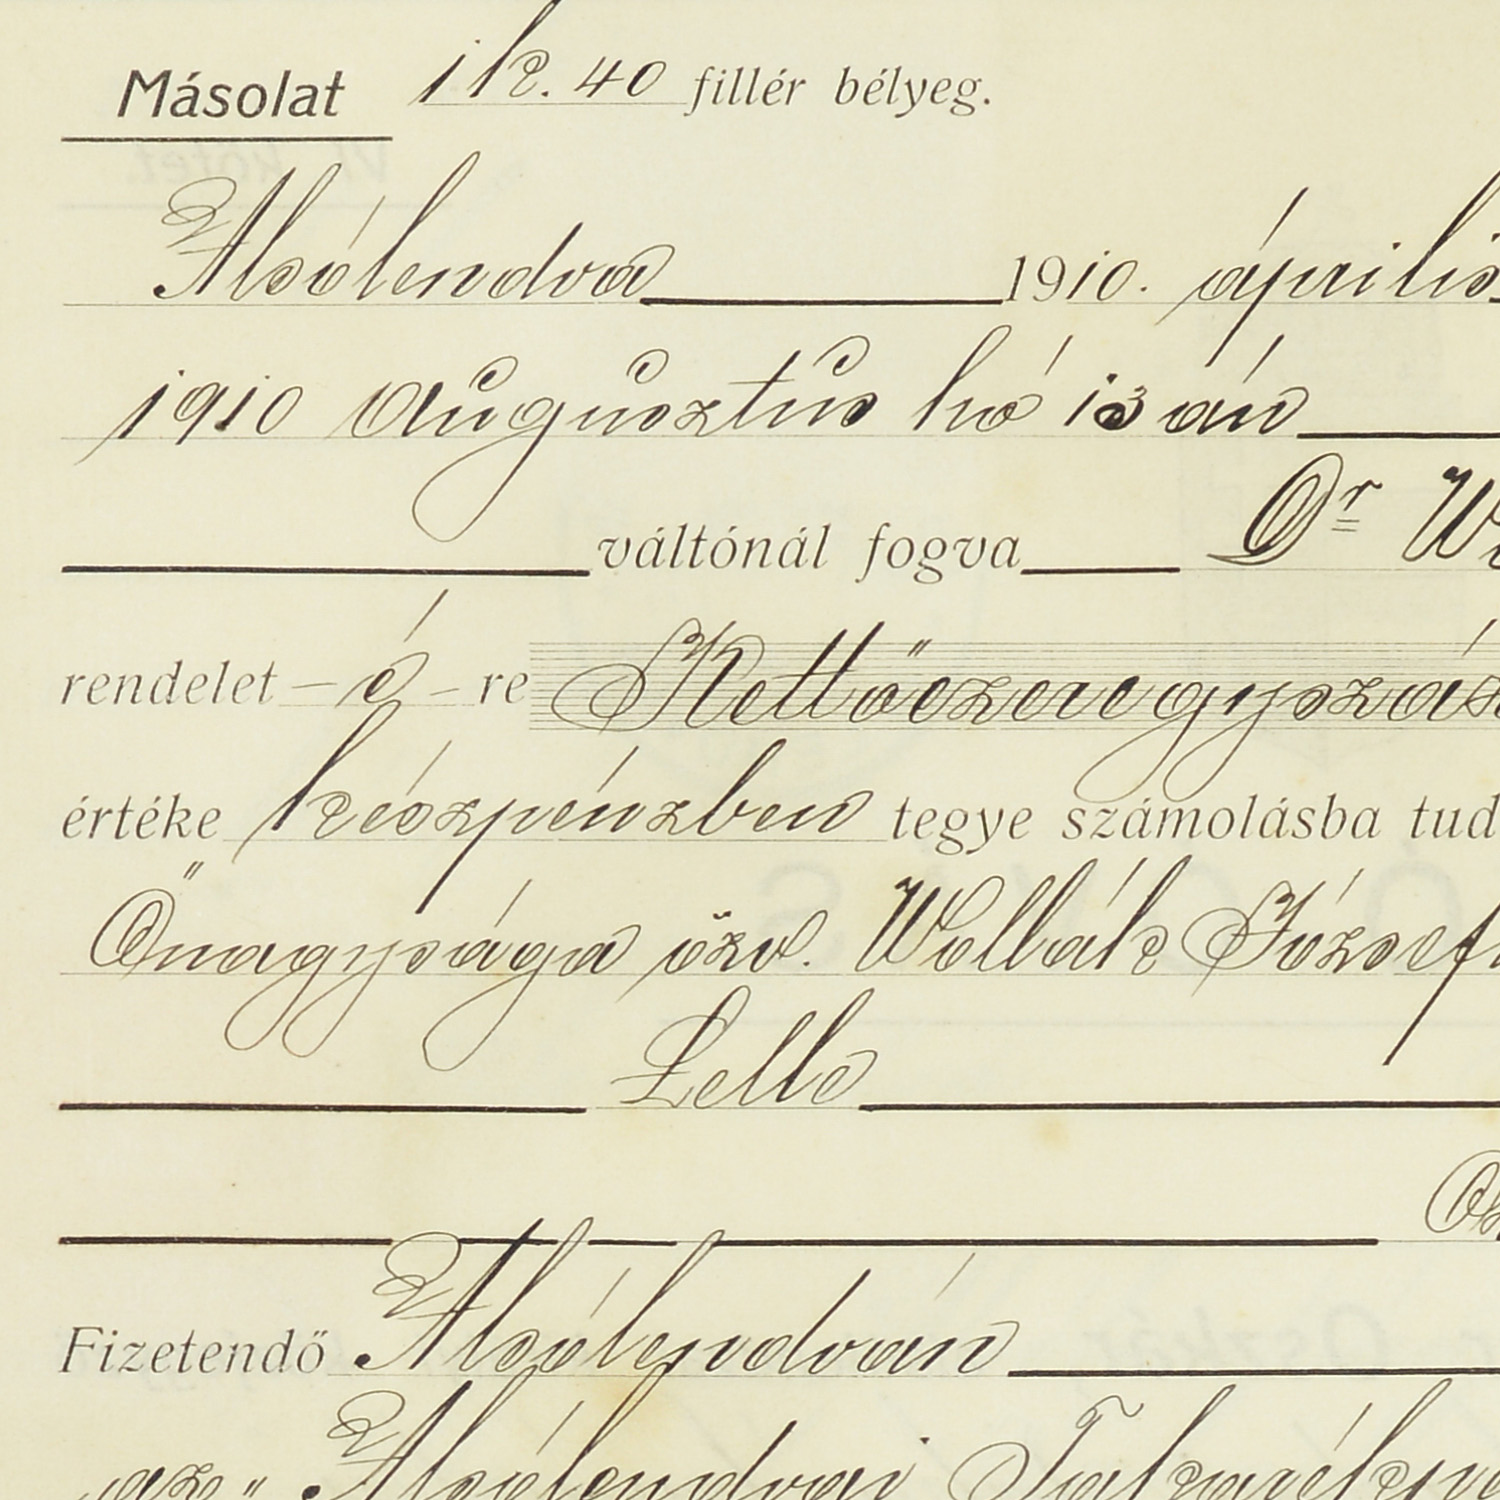 Másolat 1 k. 40 fillér bélyeg.
Alsólendva 1910. április
1910 augusztus hó 13 án
váltónál fogva Dr W
rendelet - é - re Kettőezeregyszáz
értéke készpénzben tegye számolásba tud
Őnagysága özv. Wollák József
Lelle
Fizetendő Alsólendván
az „Alsólendvai Takarékpé